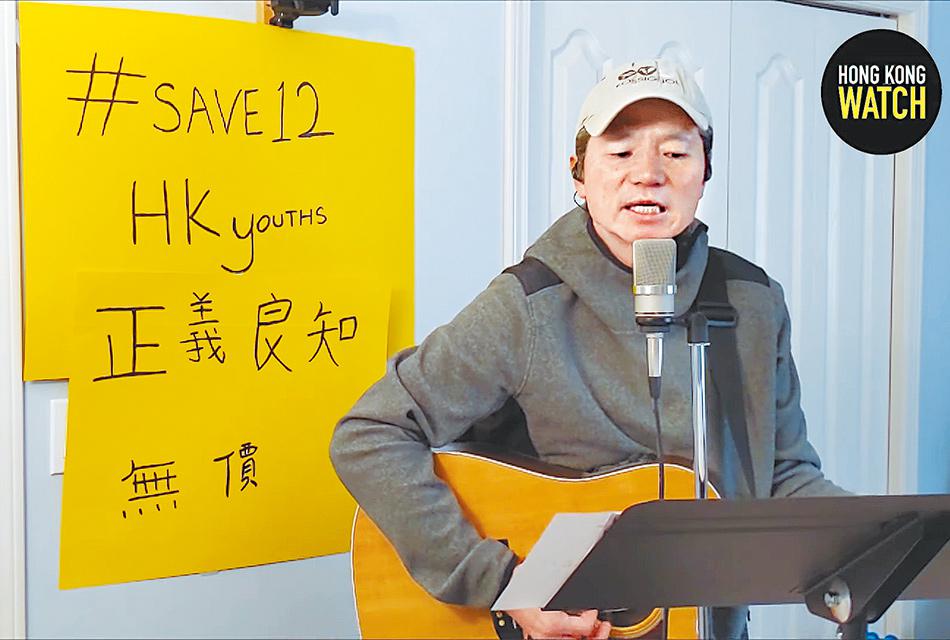 #SAVE12
HK youTHS
正義良知
無價
HONG KONG
WATCH